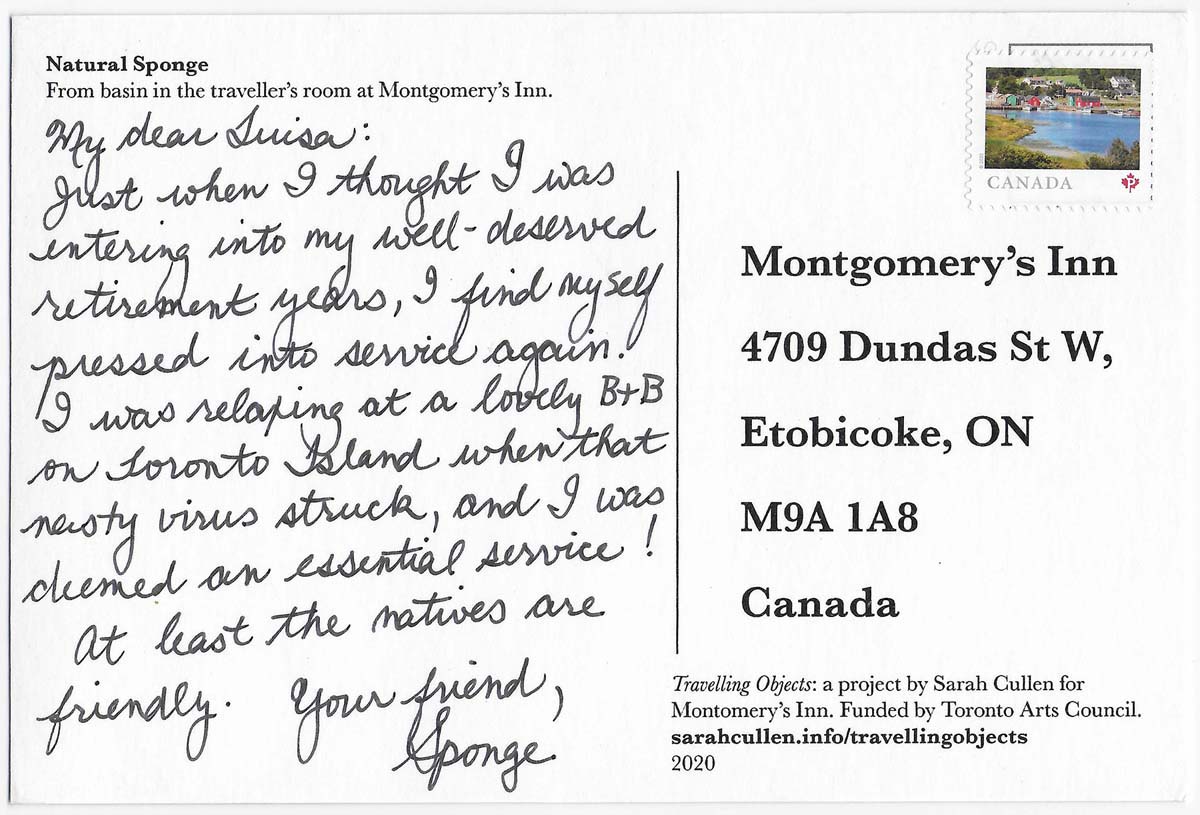 Natural Sponge
From basin in the traveller's room at Montgomery's Inn.
My dear Luisa:
Just when I thought I was
entering into my well-deserved
retirement years, I find myself
pressed into service again.
I was relaxing at a lovely B+B
on Toronto Island when that
nasty virus struck, and I was
deemed an essential service!
At least the natives are
friendly. Your friend,
Sponge.
CANADA
P
Montgomery's Inn
4709 Dundas St W,
Etobicoke, ON
M9A 1A8
Canada
Travelling Objects: a project by Sarah Cullen for
Montomery's Inn. Funded by Toronto Arts Council.
sarahcullen.info/travellingobjects
2020